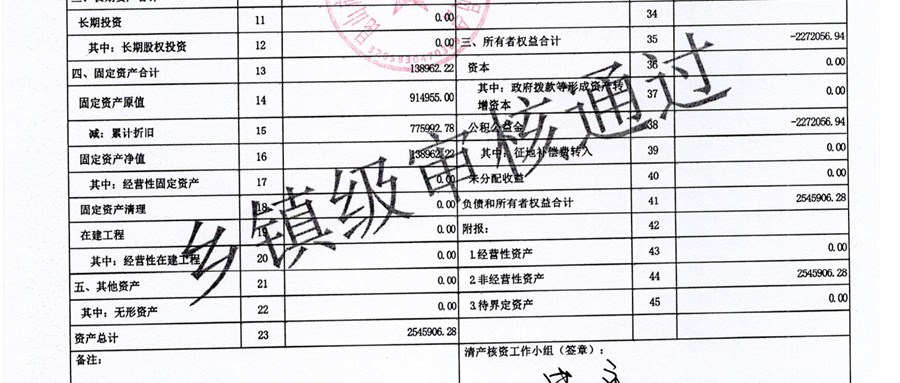 长期投资 11 0.00 34
其中：长期股权投资 12 0.00 三、所有者权益合计 35 -2272056.94
四、固定资产合计 13 138962.22 资本 36 0.00
固定资产原值 14 914955.00 其中：政府拨款等形成资产转增资本 37 0.00
减：累计折旧 15 775992.78 公积公益金 38 -2272056.94
固定资产净值 16 138962.22 其中：征地补偿费转入 39 0.00
其中：经营性固定资产 17 0.00 未分配收益 40 0.00
固定资产清理 18 0.00 负债和所有者权益合计 41 2545906.28
在建工程 19 0.00 附报： 42
其中：经营性在建工程 20 0.00 1.经营性资产 43 0.00
五、其他资产 21 0.00 2.非经营性资产 44 2545906.28
其中：无形资产 22 0.00 3.待界定资产 45 0.00
资产总计 23 2545906.28
备注： 清产核资工作小组（签章）：
乡镇级审核通过